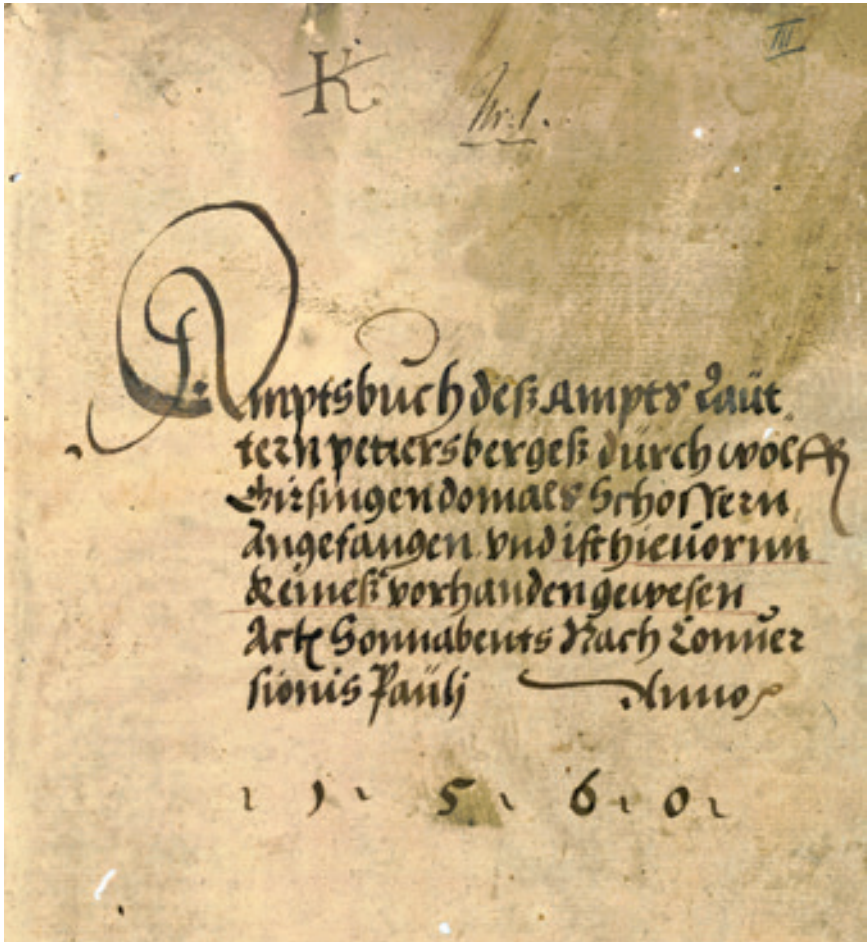 K
III
Nr. 1.
Amptsbuch deß Ampts Laüt
tern petersbergeß dürch wolff
Girsingen domals Schossern
Angefangen vnd ist hieuorun
Keineß vorhanden gewesen
Actx Sonnabents Nach Conuer
sionis Paülj Anno
1 5 6 0